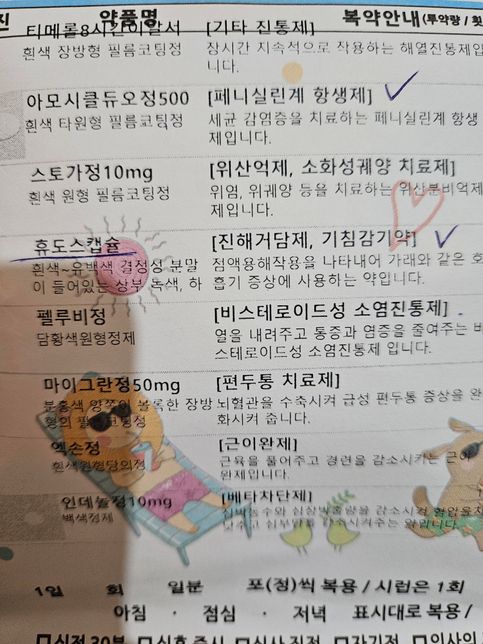 진 약품명 복약안내(투약량 / 횟
티메롤8시간이알서 [기타 진통제]
흰색 장방형 필름코팅정 장시간 지속적으로 작용하는 해열진통제입
니다.
아모시클듀오정500 [페니실린계 항생제]
흰색 타원형 필름코팅정 세균 감염증을 치료하는 페니실린계 항생
제입니다.
스토가정10mg [위산억제, 소화성궤양 치료제]
흰색 원형 필름코팅정 위염, 위궤양 등을 치료하는 위산분비억제
제입니다.
휴도스캡슐 [진해거담제, 기침감기약]
흰색~유백색 결정성 분말 점액용해작용을 나타내어 가래와 같은 호
이 들어있는 상부 녹색, 하 흡기 증상에 사용하는 약입니다.
펠루비정 [비스테로이드성 소염진통제]
담황색원형정제 열을 내려주고 통증과 염증을 줄여주는 비
스테로이드성 소염진통제 입니다.
마이그란정50mg [편두통 치료제]
분홍색 양쪽이 볼록한 장방 뇌혈관을 수축시켜 급성 편두통 증상을 완
형의 필름코팅정 화시켜 줍니다.
엑손정 [근이완제]
흰색원형당의정 근육을 풀어주고 경련을 감소시키는 근이
완제입니다.
인데놀정10mg [베타차단제]
백색정제 심박동수와 심실박출량을 감소시켜 혈압을
낮추고 심부담을 감소시켜주는 약입니다.
1일 회 일분 포(정)씩 복용 / 시럽은 1회
아침 · 점심 · 저녁 표시대로 복용 /
□식전30분 □식후즉시 □식사직전 □자기전 □의사의